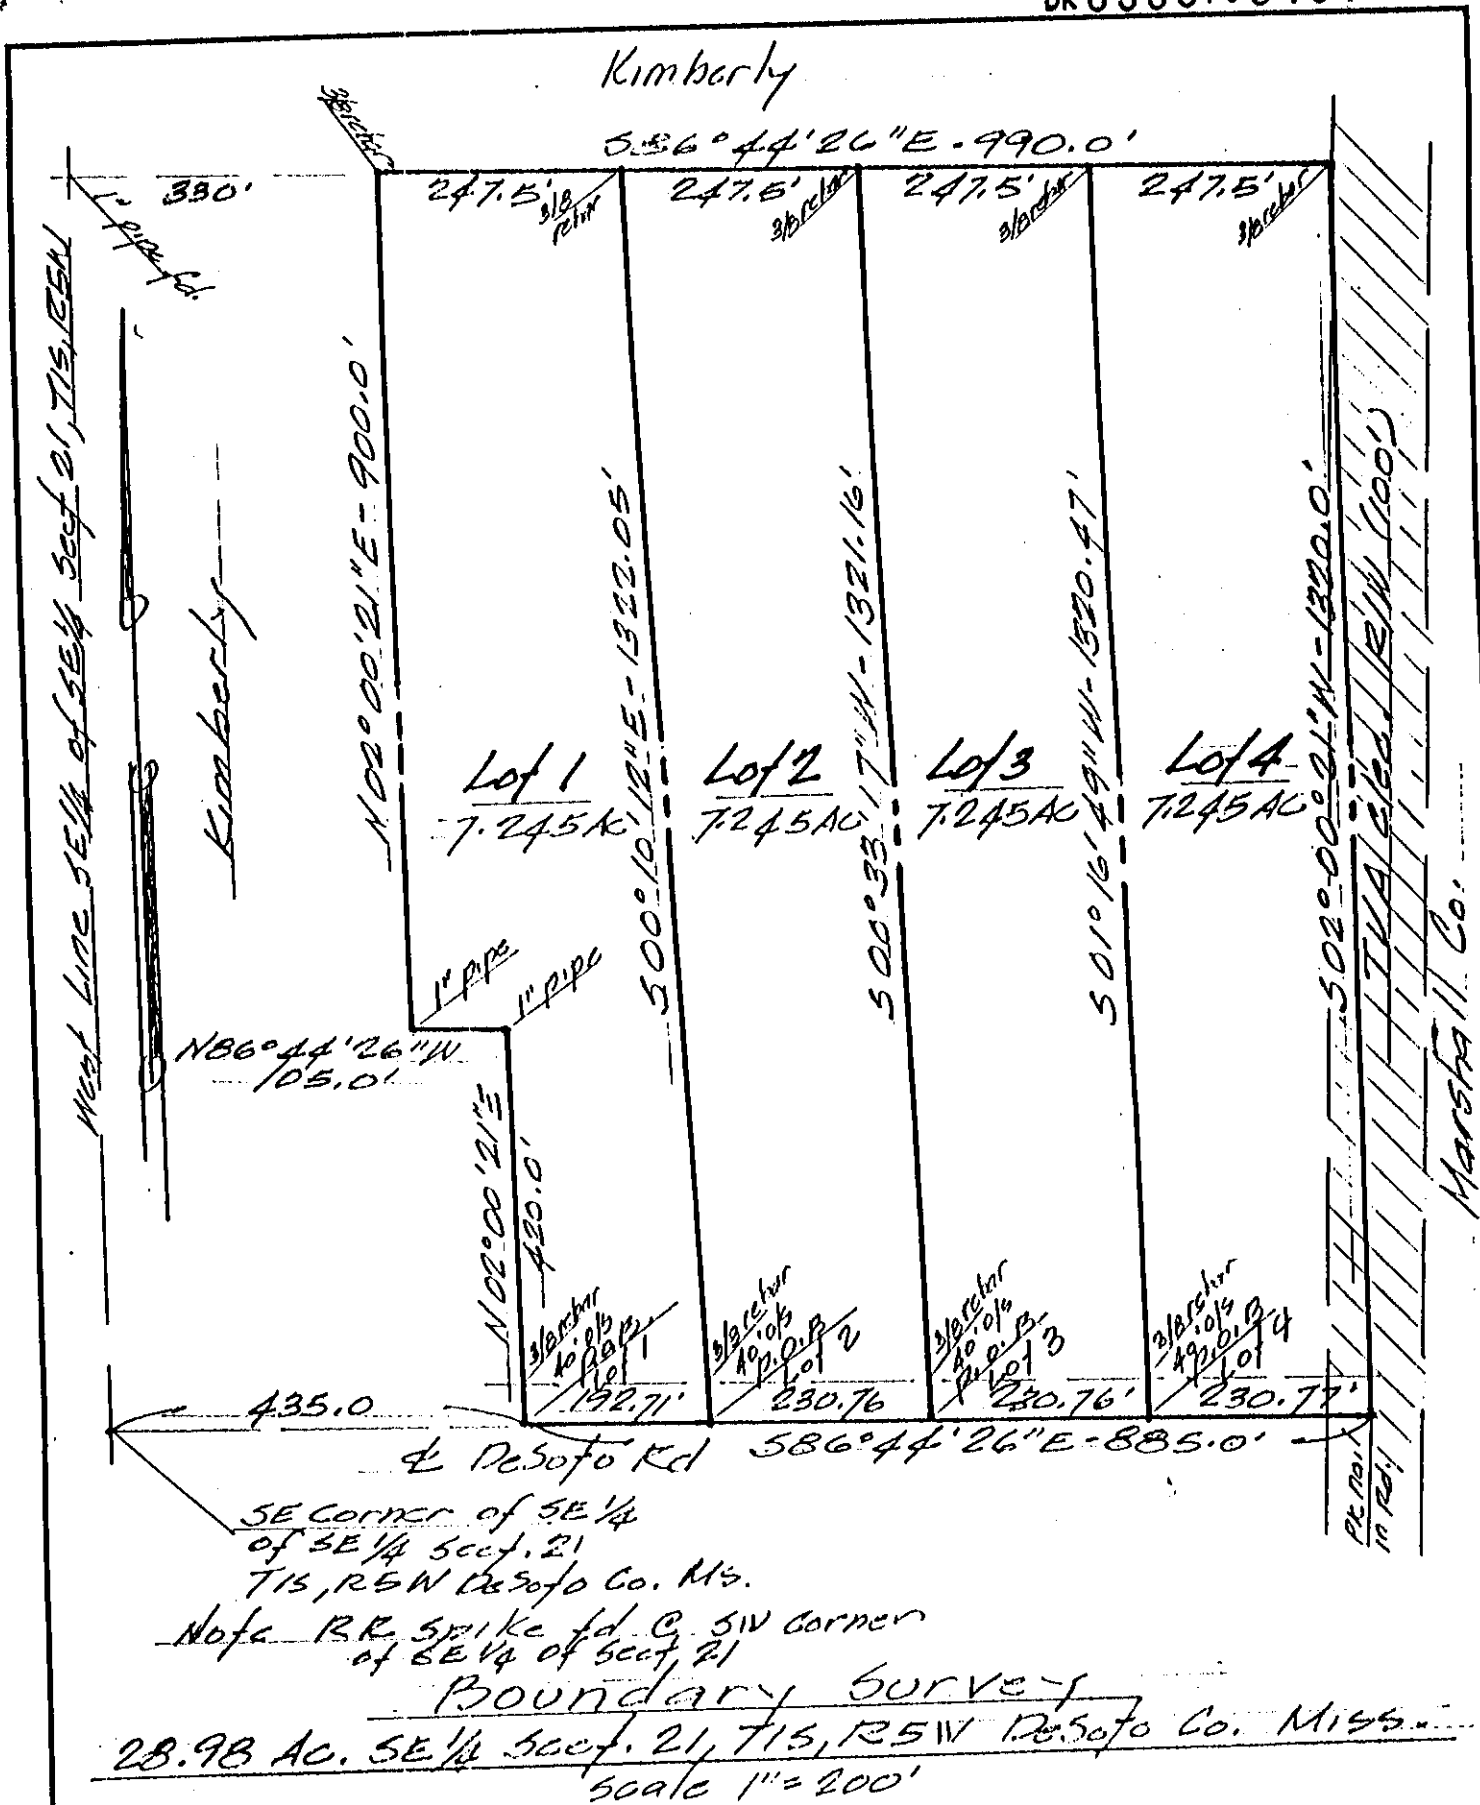 Kimberly
S86°44'26"E - 990.0'
3/8 rebar
330'
247.5'
247.5'
247.5'
247.5'
3/8 rebar
3/8 rebar
3/8 rebar
3/8 rebar
1" pipe fd.
West Line SE1/4 of SE1/4 Sect 21, T1S, R5W
Kimberly
N02°00'21"E - 900.0'
S00°10'12"E - 1322.05'
S00°33'17"W - 1321.16'
S01°16'49"W - 1320.47'
S02°00'21"W - 1320.0'
TVA R/W (100')
Marshall Co.
Lot 1
7.245 AC
Lot 2
7.245 AC
Lot 3
7.245 AC
Lot 4
7.245 AC
1" pipe
1" pipe
N86°44'26"W
105.0'
N02°00'21"E
420.0'
3/8 rebar
40' o/s
P.O.B.
Lot 1
3/8 rebar
40' o/s
P.O.B
Lot 2
3/8 rebar
40' o/s
P.O.B.
Lot 3
3/8 rebar
40' o/s
P.O.B
Lot 4
435.0
192.71'
230.76
230.76'
230.77'
℄ DeSoto Rd
S86°44'26"E - 885.0'
PK nail
in Rd.
SE Corner of SE 1/4
of SE 1/4 Sect. 21
T1S, R5W DeSoto Co. Ms.
Note RR Spike fd @ SW Corner
of SE 1/4 of Sect. 21
Boundary Survey
28.98 Ac. SE 1/4 Sect. 21, T1S, R5W DeSoto Co. Miss.
Scale 1" = 200'